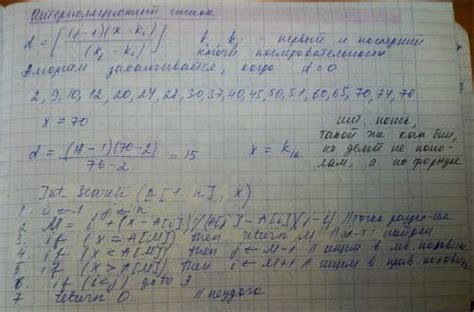 Интерполяционный список
d = [(j-1)(x - ki) / (kj - ki)] ki kj - первый и последний
ключи последовательности
Алгоритм заканчивается, когда d=0
2, 9, 10, 12, 20, 24, 28, 30, 37, 40, 45, 50, 51, 60, 65, 70, 74, 76
x = 70
d = (18-1)(70-2) / 76-2 = 15 x = k16
инт. поиск,
такой же как бин,
но делит не попо-
лам, а по формуле
Int Search (A[1..n], x)
1. i ← 1, j ← n
2 M = i + (x - A[i]) / (A[j] - A[i])(j-i) // точка
3. if (x = A[M]) then return M // найден
4 if (x < A[M]) then j ← M-1 // ищем в лев половине
5 if (x > A[M]) then i ← M+1 // ищем в прав половине
6. if (i<j) goto 3
7 return 0 // неудача